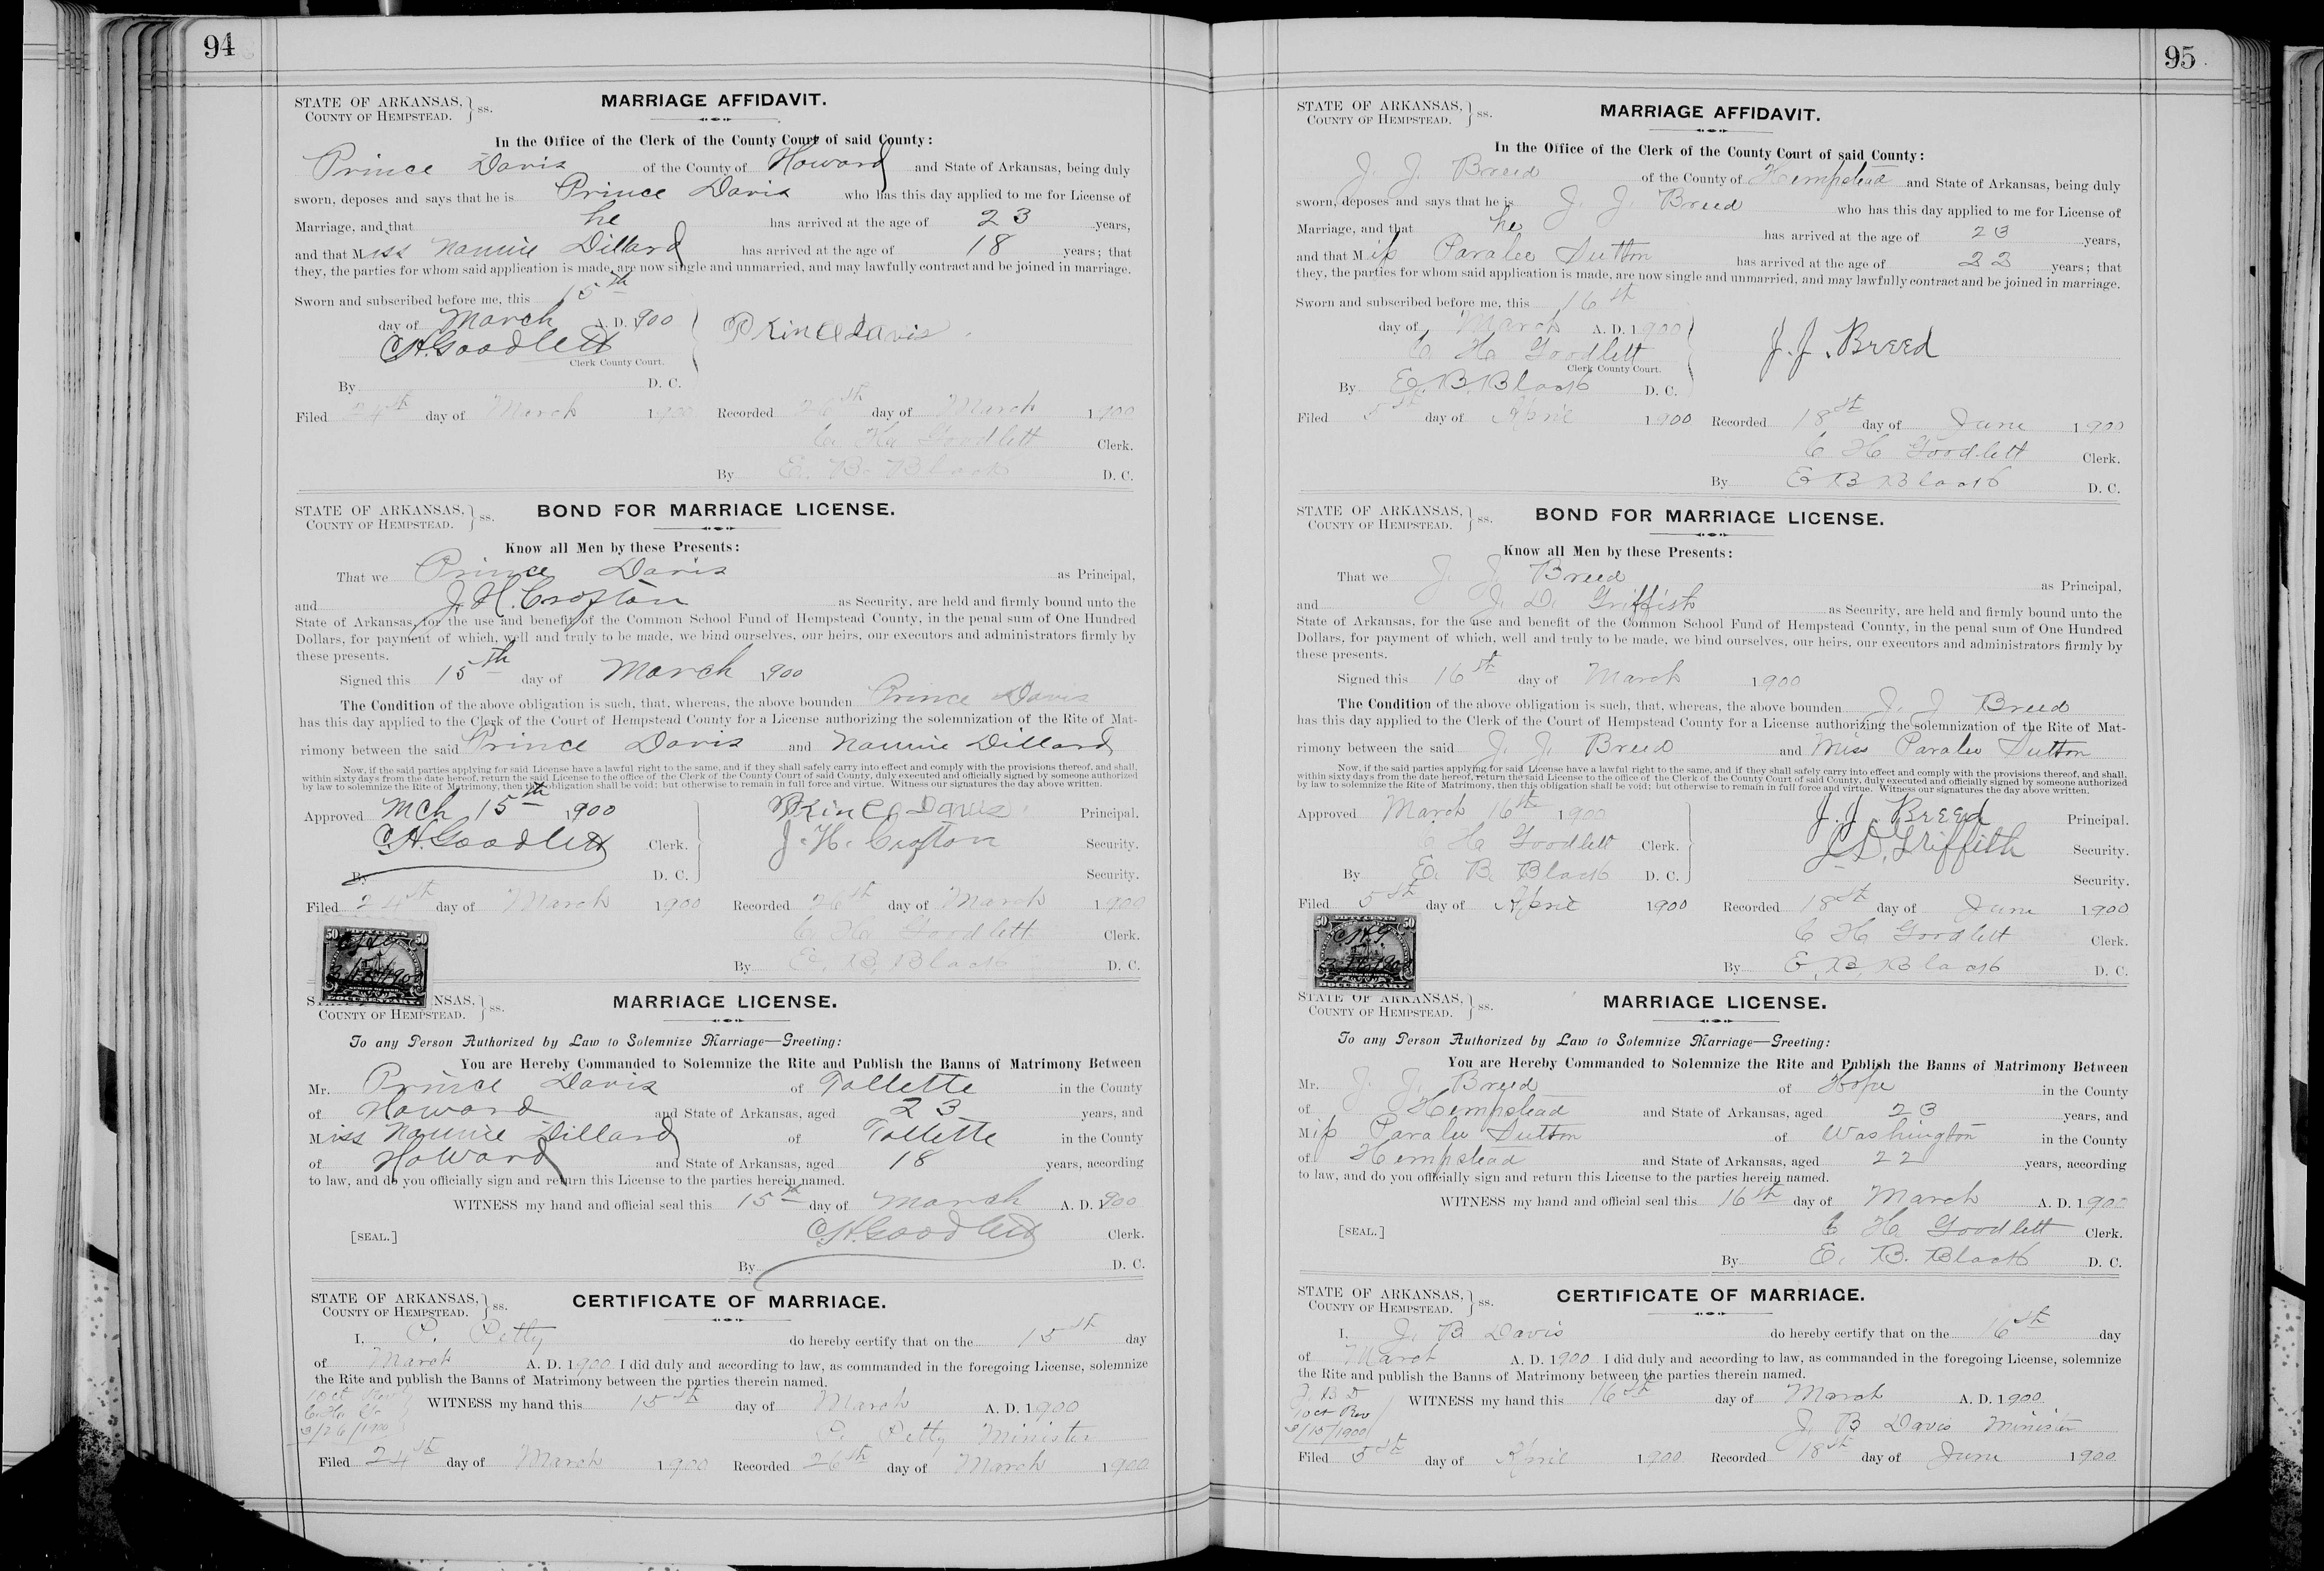 94
STATE OF ARKANSAS,
COUNTY OF HEMPSTEAD. } ss.
MARRIAGE AFFIDAVIT.
In the Office of the Clerk of the County Court of said County:
Prince Davis of the County of Howard and State of Arkansas, being duly
sworn, deposes and says that he is Prince Davis who has this day applied to me for License of
Marriage, and that he has arrived at the age of 23 years,
and that Miss Nannie Dillard has arrived at the age of 18 years; that
they, the parties for whom said application is made, are now single and unmarried, and may lawfully contract and be joined in marriage.
Sworn and subscribed before me, this 15th
day of March A. D. 1900 Prince Davis
C.H. Goodlett
Clerk County Court.
By D. C.
Filed 24th day of March 1900 Recorded 26th day of March 1900
C H Goodlett Clerk.
By E. B. Black D. C.
STATE OF ARKANSAS,
COUNTY OF HEMPSTEAD. } ss.
BOND FOR MARRIAGE LICENSE.
Know all Men by these Presents:
That we Prince Davis as Principal,
and J. H. Crofton as Security, are held and firmly bound unto the
State of Arkansas, for the use and benefit of the Common School Fund of Hempstead County, in the penal sum of One Hundred
Dollars, for payment of which, well and truly to be made, we bind ourselves, our heirs, our executors and administrators firmly by
these presents.
Signed this 15th day of March 1900
The Condition of the above obligation is such, that, whereas, the above bounden Prince Davis
has this day applied to the Clerk of the Court of Hempstead County for a License authorizing the solemnization of the Rite of Mat-
rimony between the said Prince Davis and Nannie Dillard
Now, if the said parties applying for said License have a lawful right to the same, and if they shall safely carry into effect and comply with the provisions thereof, and shall,
within sixty days from the date hereof, return the said License to the office of the Clerk of the County Court of said County, duly executed and officially signed by someone authorized
by law to solemnize the Rite of Matrimony, then this obligation shall be void; but otherwise to remain in full force and virtue. Witness our signatures the day above written.
Approved Mch 15th 1900 Prince Davis Principal.
C.H. Goodlett Clerk. J. H. Crofton Security.
By D. C. Security.
Filed 24th day of March 1900 Recorded 26th day of March 1900
C H Goodlett Clerk.
By E. B. Black D. C.
50 FIFTY CENTS 50
DOCUMENTARY.
NSAS,
COUNTY OF HEMPSTEAD. } ss.
MARRIAGE LICENSE.
To any Person Authorized by Law to Solemnize Marriage—Greeting:
You are Hereby Commanded to Solemnize the Rite and Publish the Banns of Matrimony Between
Mr. Prince Davis of Tollette in the County
of Howard and State of Arkansas, aged 23 years, and
Miss Nannie Dillard of Tollette in the County
of Howard and State of Arkansas, aged 18 years, according
to law, and do you officially sign and return this License to the parties herein named.
WITNESS my hand and official seal this 15th day of March A. D. 1900
[SEAL.] C.H. Goodlett Clerk.
By D. C.
STATE OF ARKANSAS,
COUNTY OF HEMPSTEAD. } ss.
CERTIFICATE OF MARRIAGE.
I, P. Petty do hereby certify that on the 15th day
of March A. D. 1900 I did duly and according to law, as commanded in the foregoing License, solemnize
the Rite and publish the Banns of Matrimony between the parties therein named.
WITNESS my hand this 15th day of March A. D. 1900
10ct
3/26/1900
P. Petty Minister
Filed 24th day of March 1900 Recorded 26th day of March 1900
95
STATE OF ARKANSAS,
COUNTY OF HEMPSTEAD. } ss.
MARRIAGE AFFIDAVIT.
In the Office of the Clerk of the County Court of said County:
J. J. Breed of the County of Hempstead and State of Arkansas, being duly
sworn, deposes and says that he is J. J. Breed who has this day applied to me for License of
Marriage, and that he has arrived at the age of 23 years,
and that Miss Paralee Sutton has arrived at the age of 22 years; that
they, the parties for whom said application is made, are now single and unmarried, and may lawfully contract and be joined in marriage.
Sworn and subscribed before me, this 16th
day of March A. D. 1900 J. J. Breed
C H Goodlett
Clerk County Court.
By E. B. Black D. C.
Filed 5th day of April 1900 Recorded 18th day of June 1900
C H Goodlett Clerk.
By E B Black D. C.
STATE OF ARKANSAS,
COUNTY OF HEMPSTEAD. } ss.
BOND FOR MARRIAGE LICENSE.
Know all Men by these Presents:
That we J. J. Breed as Principal,
and J. D. Griffith as Security, are held and firmly bound unto the
State of Arkansas, for the use and benefit of the Common School Fund of Hempstead County, in the penal sum of One Hundred
Dollars, for payment of which, well and truly to be made, we bind ourselves, our heirs, our executors and administrators firmly by
these presents.
Signed this 16th day of March 1900
The Condition of the above obligation is such, that, whereas, the above bounden J. J. Breed
has this day applied to the Clerk of the Court of Hempstead County for a License authorizing the solemnization of the Rite of Mat-
rimony between the said J. J. Breed and Miss Paralee Sutton
Now, if the said parties applying for said License have a lawful right to the same, and if they shall safely carry into effect and comply with the provisions thereof, and shall,
within sixty days from the date hereof, return the said License to the office of the Clerk of the County Court of said County, duly executed and officially signed by someone authorized
by law to solemnize the Rite of Matrimony, then this obligation shall be void; but otherwise to remain in full force and virtue. Witness our signatures the day above written.
Approved March 16th 1900 J. J. Breed Principal.
C H Goodlett Clerk. J. D. Griffith Security.
By E. B. Black D. C. Security.
Filed 5th day of April 1900 Recorded 18th day of June 1900
C H Goodlett Clerk.
By E. B. Black D. C.
50 FIFTY CENTS 50
C.H.G.
DOCUMENTARY.
STATE OF ARKANSAS,
COUNTY OF HEMPSTEAD. } ss.
MARRIAGE LICENSE.
To any Person Authorized by Law to Solemnize Marriage—Greeting:
You are Hereby Commanded to Solemnize the Rite and Publish the Banns of Matrimony Between
Mr. J. J. Breed of Hope in the County
of Hempstead and State of Arkansas, aged 23 years, and
Miss Paralee Sutton of Washington in the County
of Hempstead and State of Arkansas, aged 22 years, according
to law, and do you officially sign and return this License to the parties herein named.
WITNESS my hand and official seal this 16th day of March A. D. 1900
[SEAL.] C H Goodlett Clerk.
By E. B. Black D. C.
STATE OF ARKANSAS,
COUNTY OF HEMPSTEAD. } ss.
CERTIFICATE OF MARRIAGE.
I, J. B Davis do hereby certify that on the 16th day
of March A. D. 1900 I did duly and according to law, as commanded in the foregoing License, solemnize
the Rite and publish the Banns of Matrimony between the parties therein named.
J B D
10ct Rev
3/15/1900
WITNESS my hand this 16th day of March A. D. 1900
J. B Davis Minister
Filed 5th day of April 1900 Recorded 18th day of June 1900